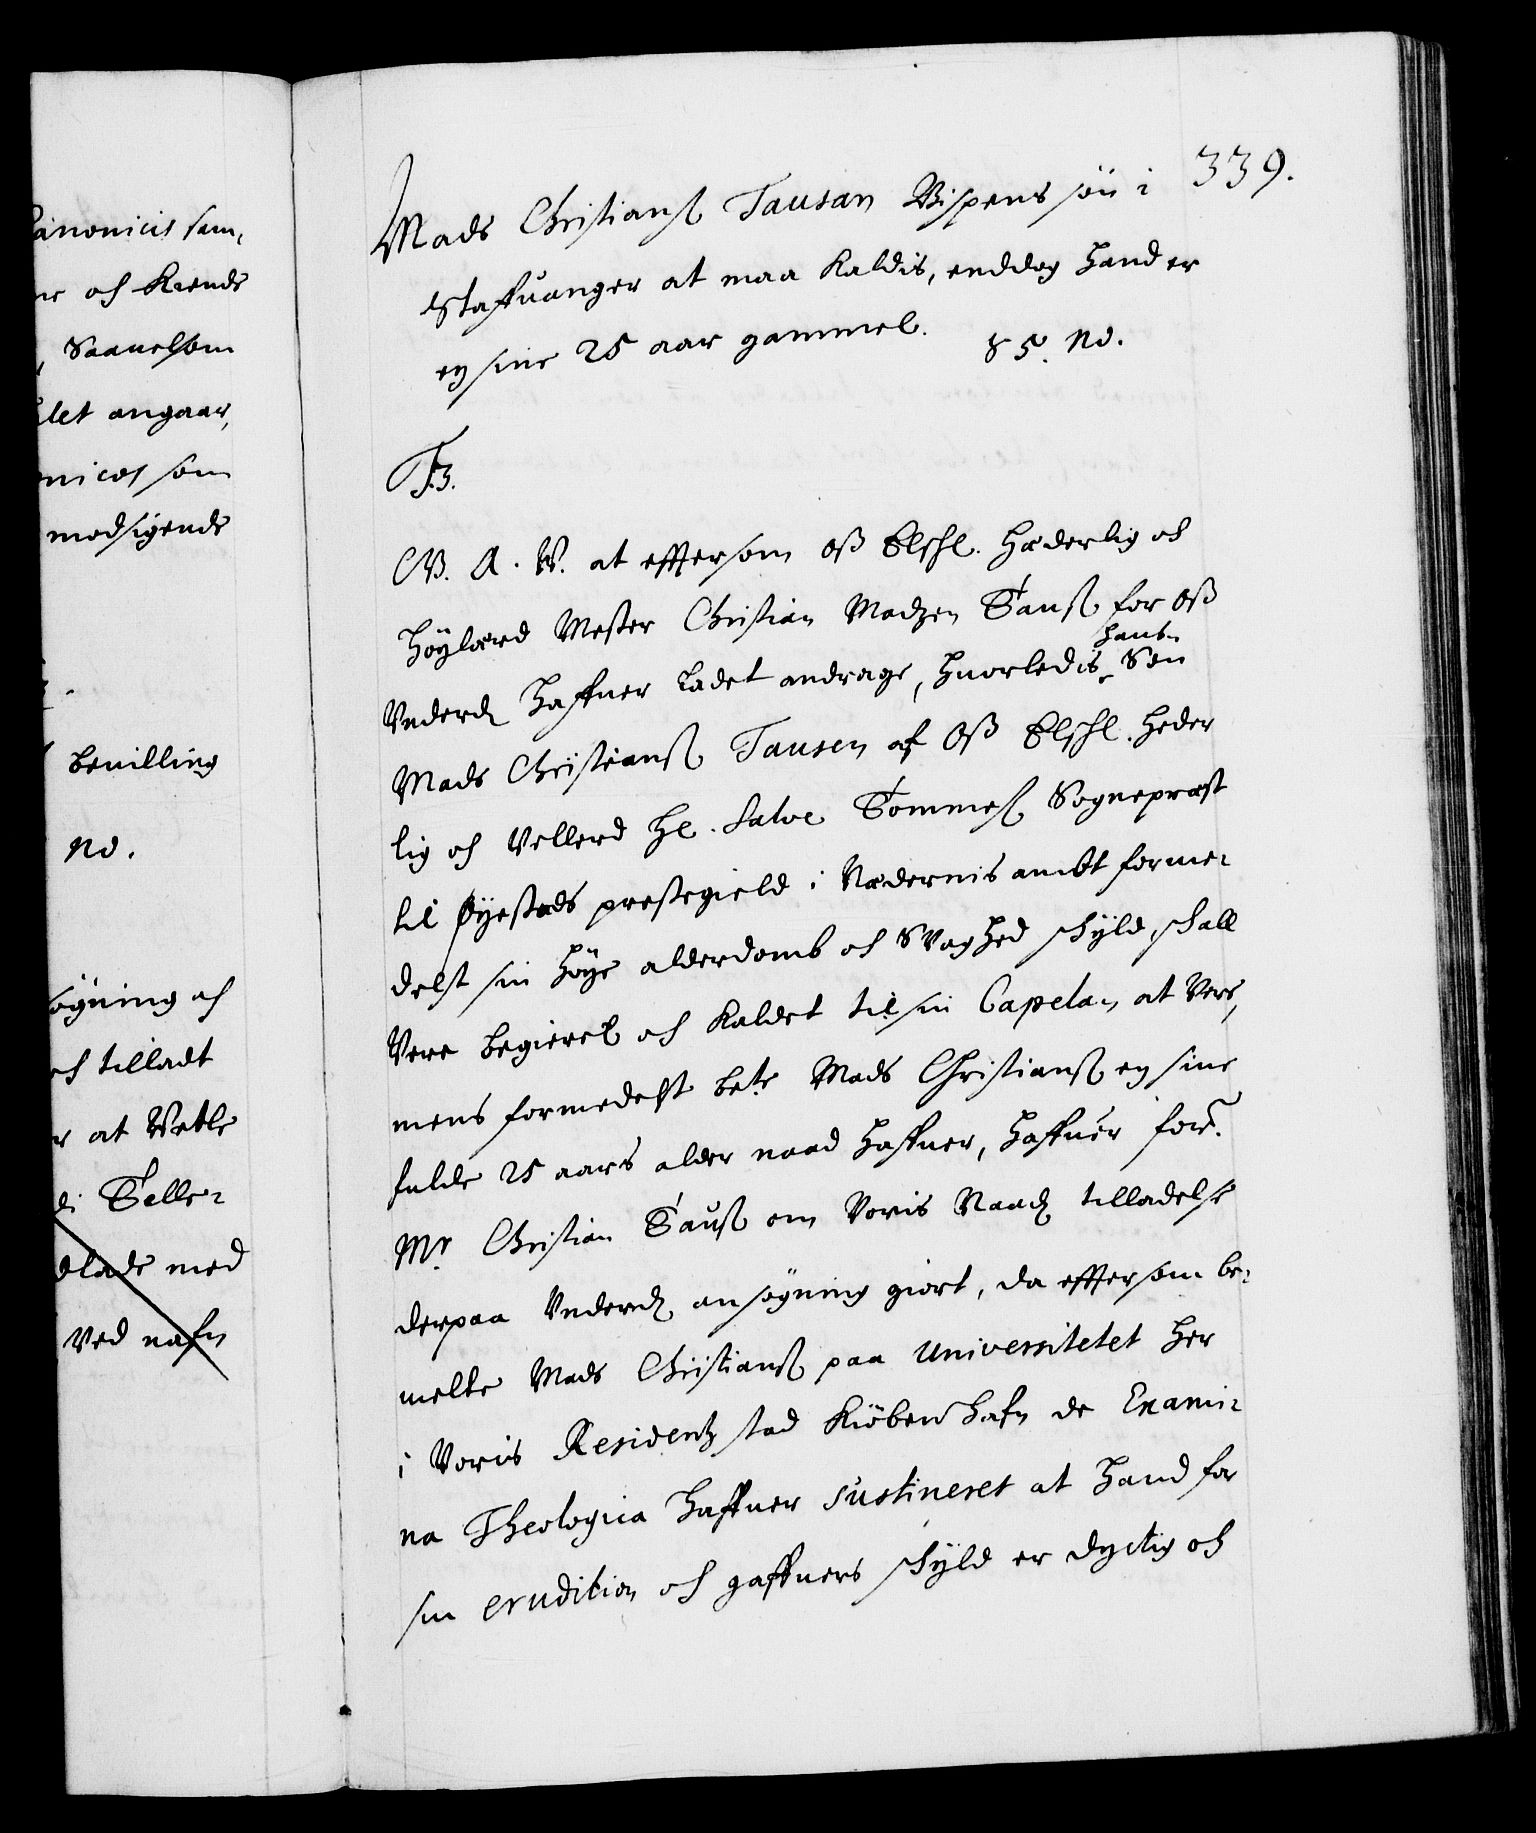 anonicis sam,
ne och kiende
, Saauelsom
let angaar,
nicos som
modsigende
beuilling
No.
søgning och
och tilladt
r at Vetle
di Telle-
dlade med
Ved nafn
339.
Mads Christianß Tausan Bispens søn i
Staffuanger at maa kaldis, enddog hand er
ey sine 25 aar gammel. 85. No.
F3.
C5. G. W. at efftersom oß Elschl. Hæderlig och
Høylærd Mester Christian Madzen Tauß for oß
Underd. haffuer ladet andrage, huorledis hans Søn
Mads Christianß Tausen af Oß Elschl. heder
lig och Vellerd Hr. Salve Tommeß Sognepræst
til Øyestads prestegield i Nædernis ambt forme-
delst sin høye alderdomb och Svaghed schyld, schall
Vere begieret och kaldet til sin Capelan at Vere,
mens formedelst bete Mads Christianß ey sine
fulde 25 aars alder naad haffuer, haffuer forn.
Mr. Christian Tauß om Voris Naads tilladelse
derpaa Underd. ansøgning giort, da effter som be-
melte Mads Christianß paa Universitetet her
i Voris Residentz stad Kiøbenhafn de Exami-
na Theologica haffuer sustineret at hand for
sin erudition och gaffuers schyld er dyctig och